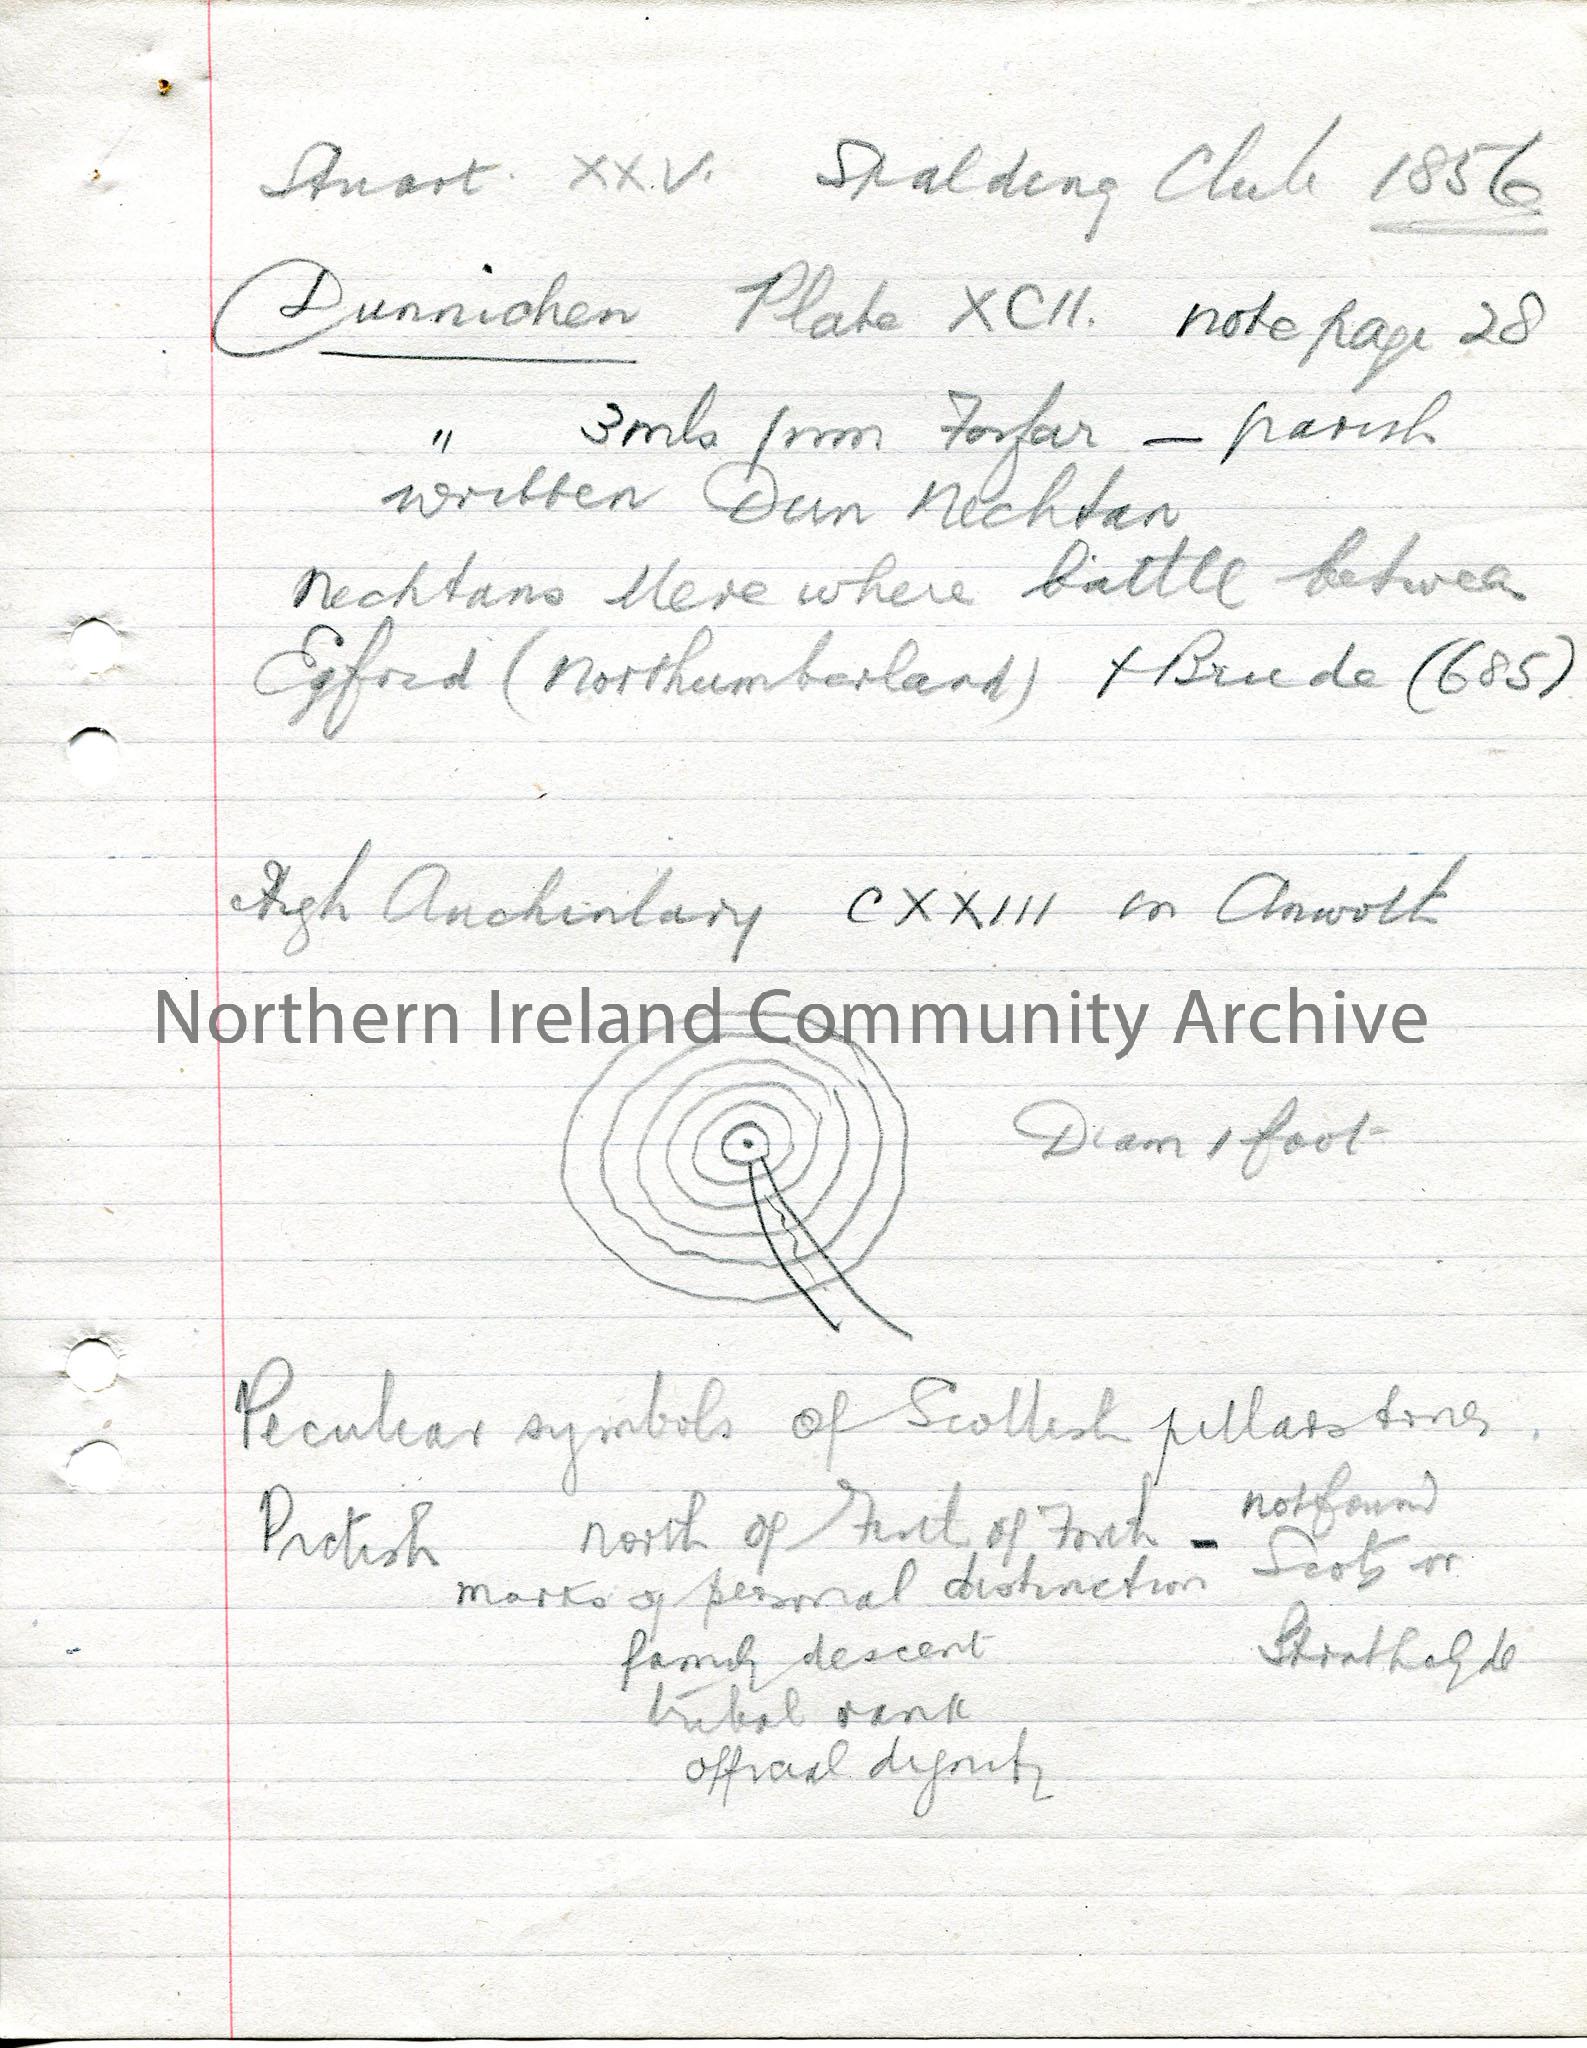 Stuart. XXV. Spalding Club 1856
Dunnichen Plate XCII. note page 28
" 3mls from Forfar — parish
written Dun Nechtan
Nechtans Mere where battle between
Egfrid (Northumberland) + Brude (685)
High Auchinlary CXXIII in Anwoth
Northern Ireland Community Archive
Diam 1 foot
Peculiar symbols of Scottish pillarstones.
Pictish north of Firth of Forth - not found
marks of personal distinction Scots or
family descent Strathclyde
tribal rank
official dignity